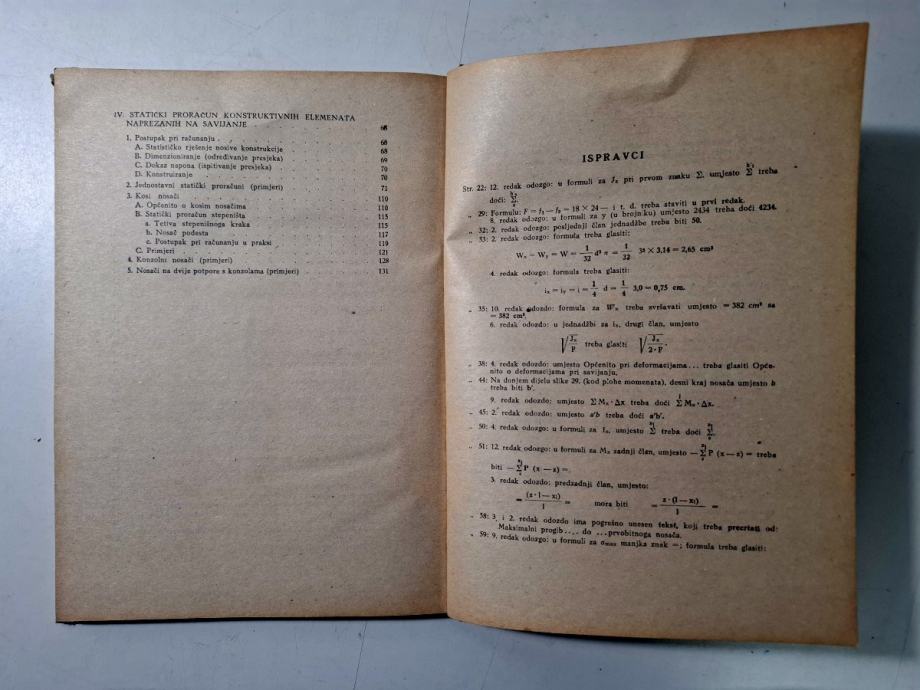 IV. STATIČKI PRORAČUN KONSTRUKTIVNIH ELEMENATA
NAPREZANIH NA SAVIJANJE . . . . . 68
1. Postupak pri računanju . . . . . 68
A. Statističko rješenje nosive konstrukcije . . . . . 68
B. Dimenzioniranje (određivanje presjeka) . . . . . 69
C. Dokaz napona (ispitivanje presjeka) . . . . . 70
D. Konstruiranje . . . . . 70
2. Jednostavni statički proračuni (primjeri) . . . . . 71
3. Kosi nosači . . . . . 110
A. Općenito o kosim nosačima . . . . . 110
B. Statički proračun stepeništa . . . . . 115
a. Tetiva stepenišnog kraka . . . . . 115
b. Nosač podesta . . . . . 117
c. Postupak pri računanju u praksi . . . . . 119
C. Primjeri . . . . . 121
4. Konzolni nosači (primjeri) . . . . . 128
5. Nosači na dvije potpore s konzolama (primjeri) . . . . . 131
ISPRAVCI
Str. 22: 12. redak odozgo: u formuli za Jₓ pri prvom znaku Σ, umjesto Σ treba
doći: Σ.
„ 29: Formulu: F = f₃ — f₈ = 18 × 24 — i t. d. treba staviti u prvi redak.
8. redak odozgo: u formuli za y (u brojniku) umjesto 2434 treba doći 4234.
„ 32: 2. redak odozgo: posljednji član jednadžbe treba biti 50.
„ 33: 2. redak odozgo: formula treba glasiti:
Wₓ — Wᵧ = W = 1/32 d³ π = 1/32 3³ × 3,14 = 2,65 cm³
4. redak odozgo: formula treba glasiti:
iₓ = iᵧ = i = 1/4 d = 1/4 3,0 = 0,75 cm.
„ 35: 10. redak odozdo: formula za Wₓ treba svršavati umjesto = 382 cm² sa
= 382 cm³.
6. redak odozdo: u jednadžbi za iₓ, drugi član, umjesto
√(Jₓ/F) treba glasiti √(Jₓ/2·F).
„ 38: 4. redak odozdo: umjesto Općenito pri deformacijama... treba glasiti Općenito
o deformacijama pri savijanju.
„ 44: Na donjem dijelu slike 29. (kod plohe momenata), desni kraj nosača umjesto b
treba biti b'.
9. redak odozdo: umjesto Σ Mₓ · Δx treba doći Σ Mₓ · Δx.
„ 45: 2. redak odozdo: umjesto a'b treba doći a'b'.
„ 50: 4. redak odozdo: u formuli za umjesto Σ treba doći Σ
„ 51: 12. redak odozgo: u formuli za Mₓ zadnji član, umjesto — Σ P (x — z) = treba
biti — Σ P (x — z) =.
3. redak odozdo: predzadnji član, umjesto:
= (z · l — x₁)/l = mora biti = z · (l — x₁)/l =
„ 58: 3. i 2. redak odozdo ima pogrešno unesen tekst, koji treba precrtati od:
Maksimalni progib .... do ... prvobitnog nosača.
„ 59: 9. redak odozgo: u formuli za σmax manjka znak =; formula treba glasiti: